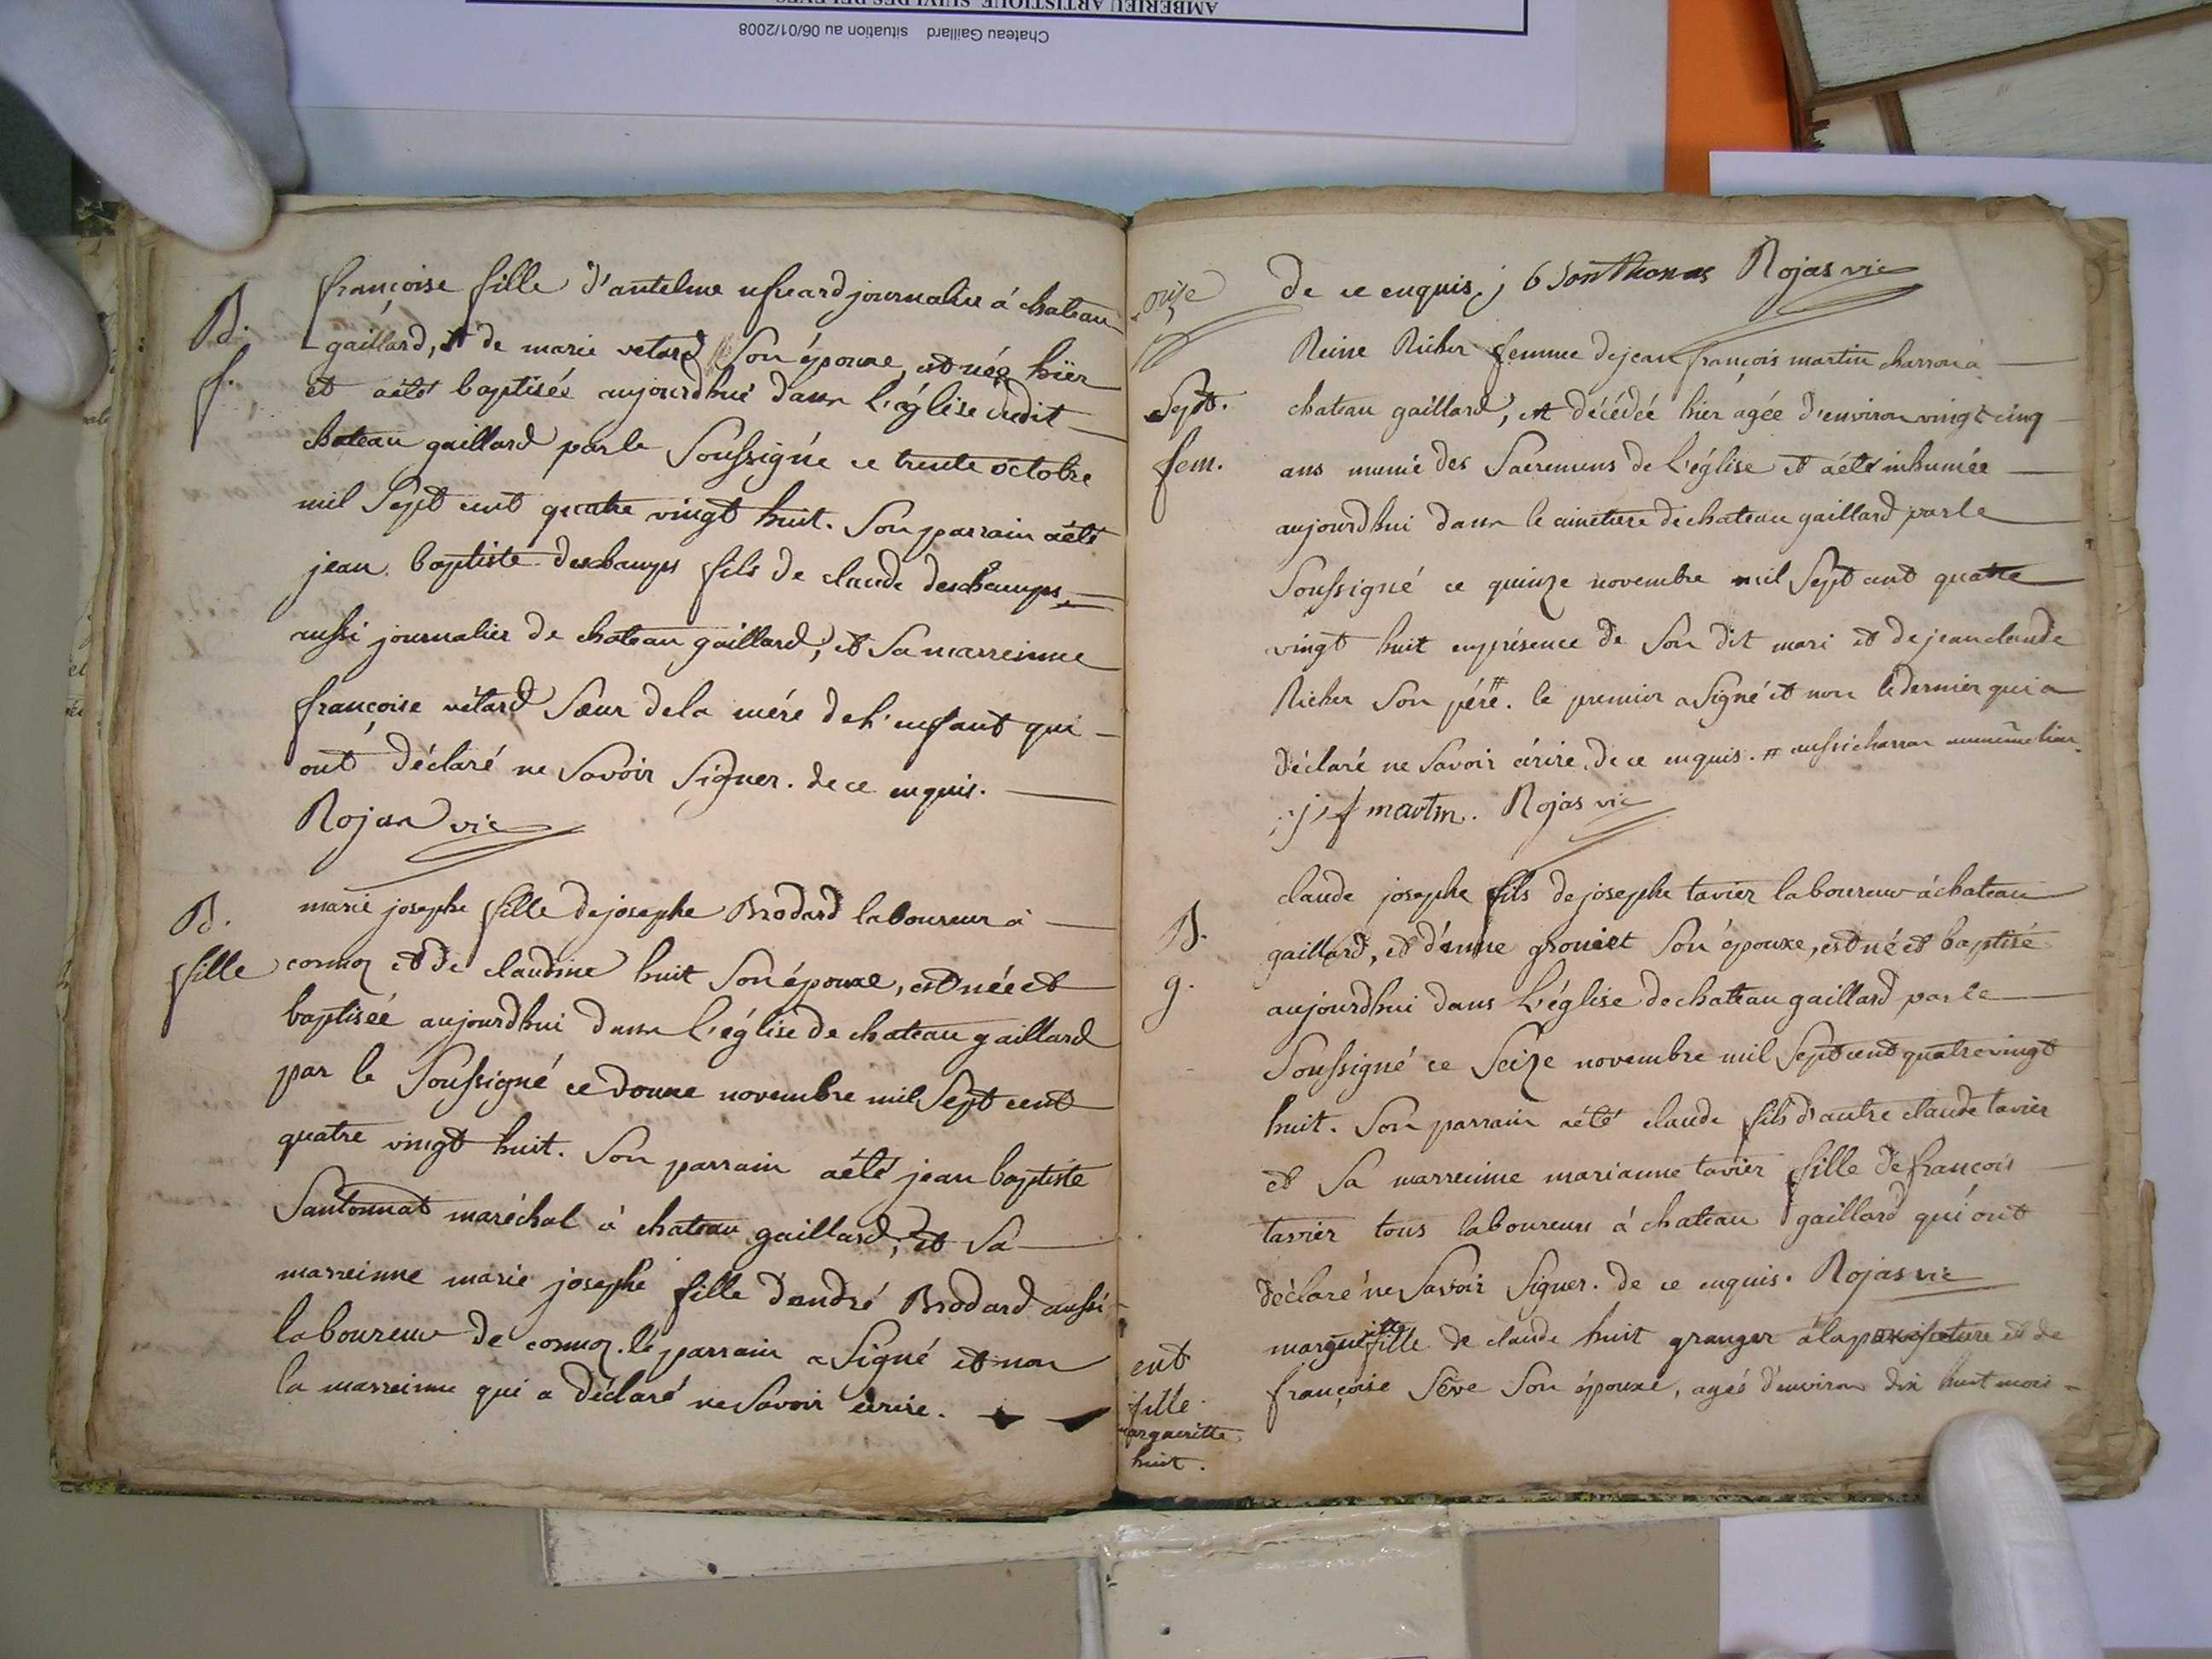 AMBERIEU ARTISTIQUE SUIVI DES RELEVES
Chateau Gaillard situation au 06/01/2008
B.
f.
françoise fille d'antelme ufreard journalier á chateau
gaillard, et de marie vetard son épouxe, est née hïer
et aété baptisée aujourdhui dans l'église dudit
chateau gaillard par le soussigné ce trente octobre
mil sept cent quatre vingt huit. son parrain aété
jean baptiste deschamps fils de claude deschamps
aussi journalier de chateau gaillard, et sa marreinne
françoise vétard sœur dela mére de l'enfant qui
ont déclaré ne savoir signer. de ce enquis.
Rojas vic
B.
fille
marie josephe fille de josephe Brodard laboureur á
cormoz et de claudine huit son épouxe, est née et
baptisée aujourdhui dans l'église de chateau gaillard
par le soussigné ce douxe novembre mil sept cent
quatre vingt huit. son parrain aété jean baptiste
santonnat maréchal á chateau gaillard, et sa
marreinne marie josephe fille d'andré Brodard aussi
laboureur de cormoz. le parrain a signé et non
la marreinne qui a déclaré ne savoir écrire.
de ce enquis. j b santhonas Rojas vic
Sept.
fem.
Reine Richer femme de jean françois martin charron á
chateau gaillard, est décédée hier agée d'environ vingt cinq
ans munie des sacremens de l'église et aété inhumée
aujourdhui dans le cimetiere de chateau gaillard par le
soussigné ce quinze novembre mil sept cent quatre
vingt huit en présence de son dit mari et de jean claude
Richer son pére #. le premier a signé et non le dernier qui a
déclaré ne savoir écrire. de ce enquis. # aussi charron au même lieu.
j f martin. Rojas vic
B.
g.
claude josephe fils de josephe tavier laboureur á chateau
gaillard, et d'anne groniet son épouxe, est né et baptisé
aujourdhui dans l'église de chateau gaillard par le
soussigné ce seize novembre mil sept cent quatre vingt
huit. son parrain aété claude fils d'autre claude tavier
et sa marreinne marianne tavier fille de françois
tavier tous laboureurs á chateau gaillard qui ont
déclaré ne savoir signer. de ce enquis. Rojas vic
ent
fille
margueritte
huit.
margueritte fille de claude huit granger á la
et de
françoise séve son épouxe, agée d'environ dix huit mois